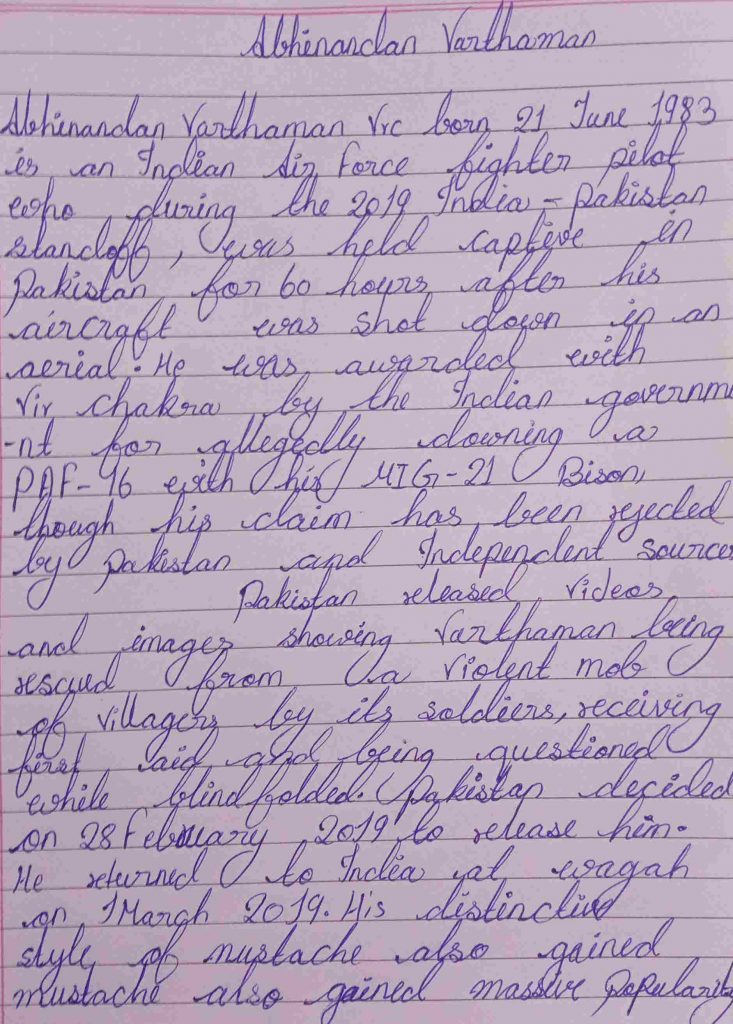 Abhinandan Varthaman
Abhinandan Varthaman Vrc born 21 June 1983
is an Indian Air Force fighter pilot
who during the 2019 India - Pakistan
standoff, was held captive in
Pakistan for 60 hours after his
aircraft was shot down in an
aerial. He was awarded with
Vir chakra by the Indian governme
-nt for allegedly downing a
PAF-16 with his MIG-21 Bison,
though his claim has been rejected
by Pakistan and Independent sources
Pakistan released videos
and images showing Varthaman being
rescued from a violent mob
of villagers by its soldiers, receiving
first aid and being questioned
while blindfolded. Pakistan decided
on 28 February 2019 to release him.
He returned to India at wagah
on 1 March 2019. His distinctive
style of mustache also gained
mustache also gained massive popularity